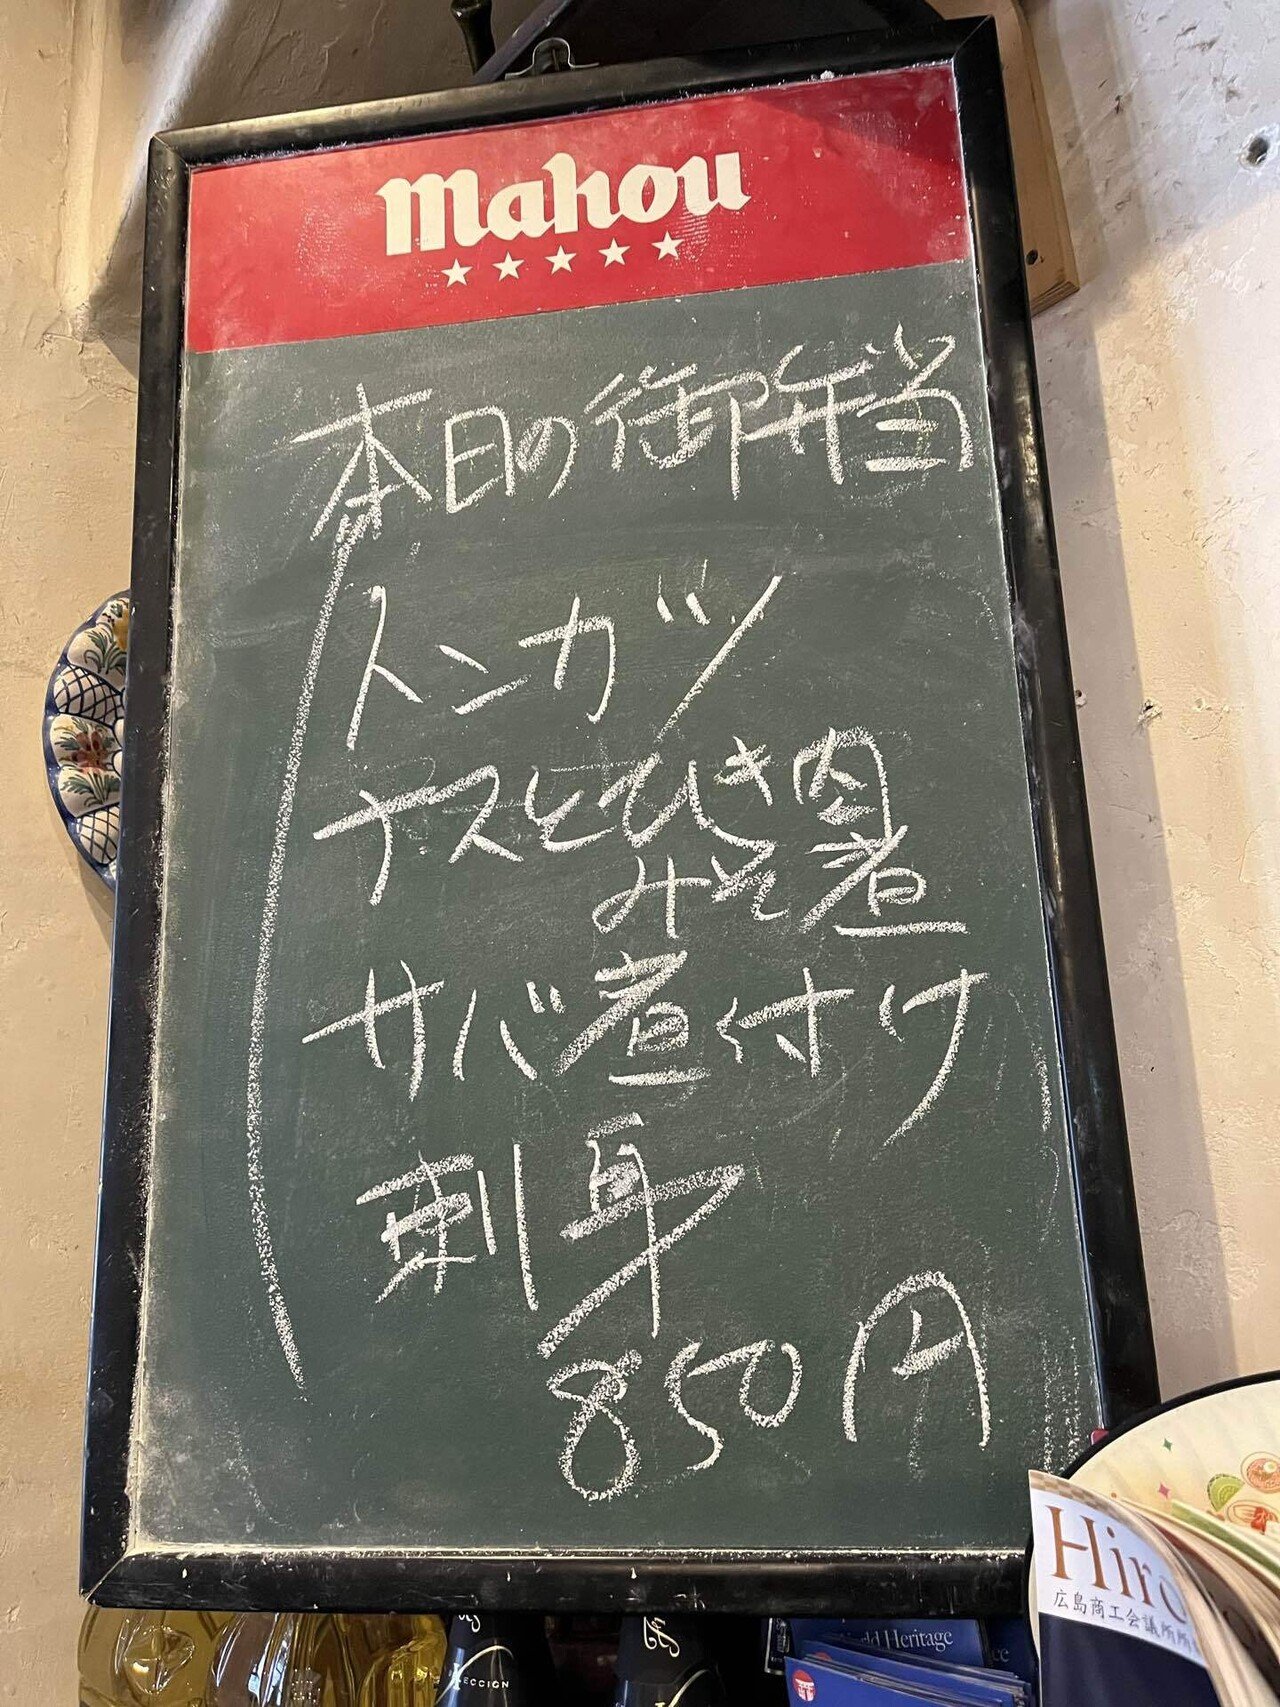 mahou
本日の御弁当
トンカツ
ナスとひき肉
みそ煮
サバ煮付け
刺身
850円
Hiro
広島商工会議所
World Heritage